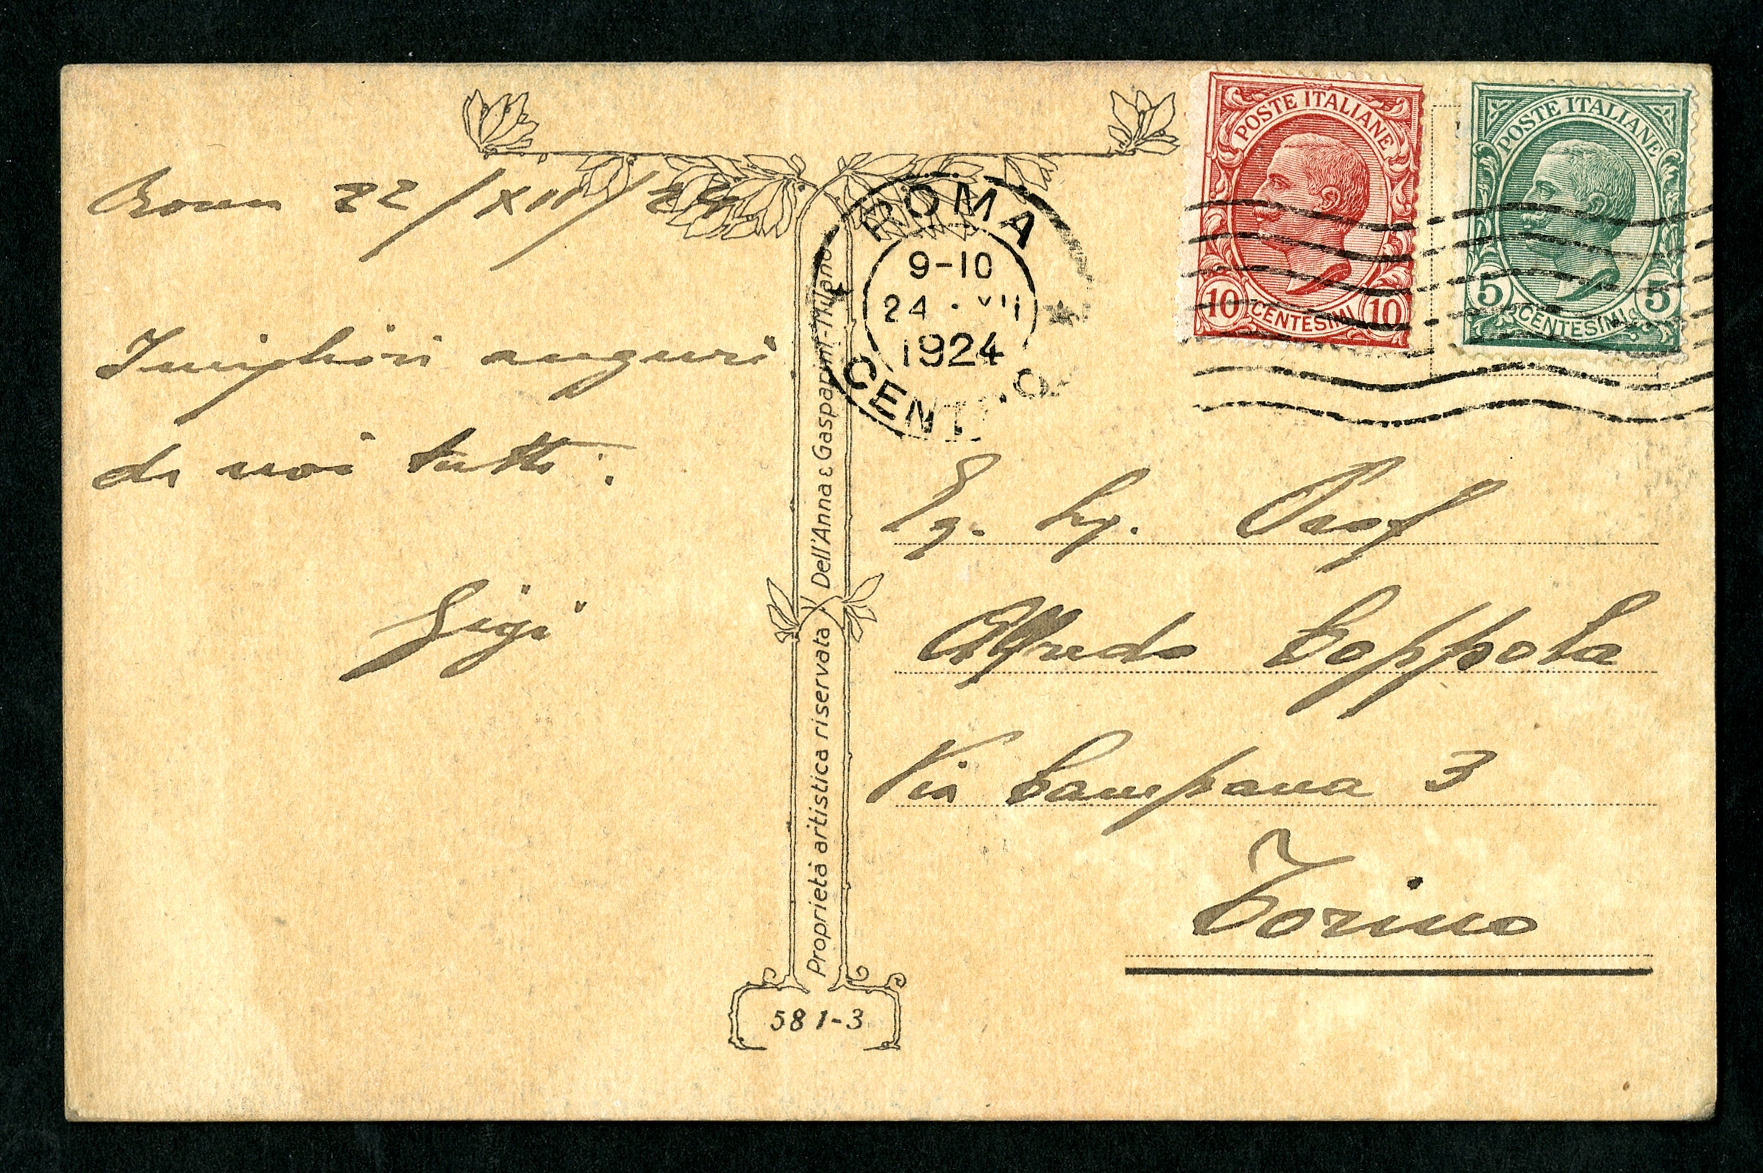 Roma 22/XII/24
I migliori auguri
di noi tutti.
Gigi
Proprietà artistica riservata / Dell'Anna ε Gasparini-Milano
581-3
ROMA
9-10
24 · XII
1924
CENTRO
POSTE ITALIANE
10 CENTESIMI 10
POSTE ITALIANE
5 CENTESIMI 5
Eg. Sig. Prof
Alfredo Coppola
Via Campana 3
Torino